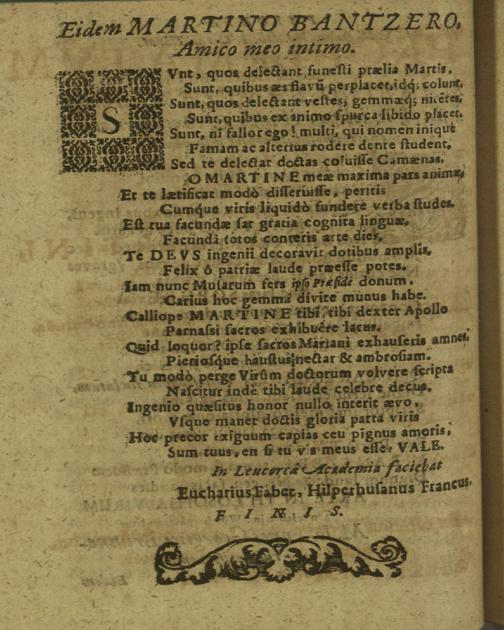 Eidem MARTINO BANTZERO,
Amico meo intimo.
SVnt, quos delectant funesti prælia Martis,
Sunt, quibus æs flavū perplacet, idq; colunt,
Sunt, quos delectant vestes, gemmæq; nitētes,
Sunt, quibus ex animo spurca libido placet.
Sunt, ni fallor ego! multi, qui nomen iniquè
Famam ac alterius rodere dente student.
Sed te delectat doctas coluisse Camœnas.
O MARTINE meæ maxima pars animæ,
Et te lætificat modò disseruisse, peritis
Cumque viris liquidò fundere verba studes.
Est tua facundæ sat gratia cognita linguæ,
Facundâ totos conteris arte dies,
Te DEVS ingenii decoravit dotibus amplis,
Felix ô patriæ laude præesse potes.
Iam nunc Musarum fers ipso Præside donum,
Carius hoc gemmâ divite munus habe.
Calliope MARTINE tibi, tibi dexter Apollo
Parnassi sacros exhibuêre lacus.
Quid loquor? ipse sacros Mariani exhauseris amnes,
Pieriosque haustus, nectar & ambrosiam.
Tu modò perge Virûm doctorum volvere scripta
Nascitur indè tibi laude celebre decus.
Ingenio quæsitus honor nullo interit ævo,
Vsque manet doctis gloria parta viris
Hoc precor exiguum capias ceu pignus amoris,
Sum tuus, en si tu vis meus esse: VALE.
In Leucoreâ Academia faciebat
Eucharius Faber, Hilperhusanus Francus.
F I N I S.